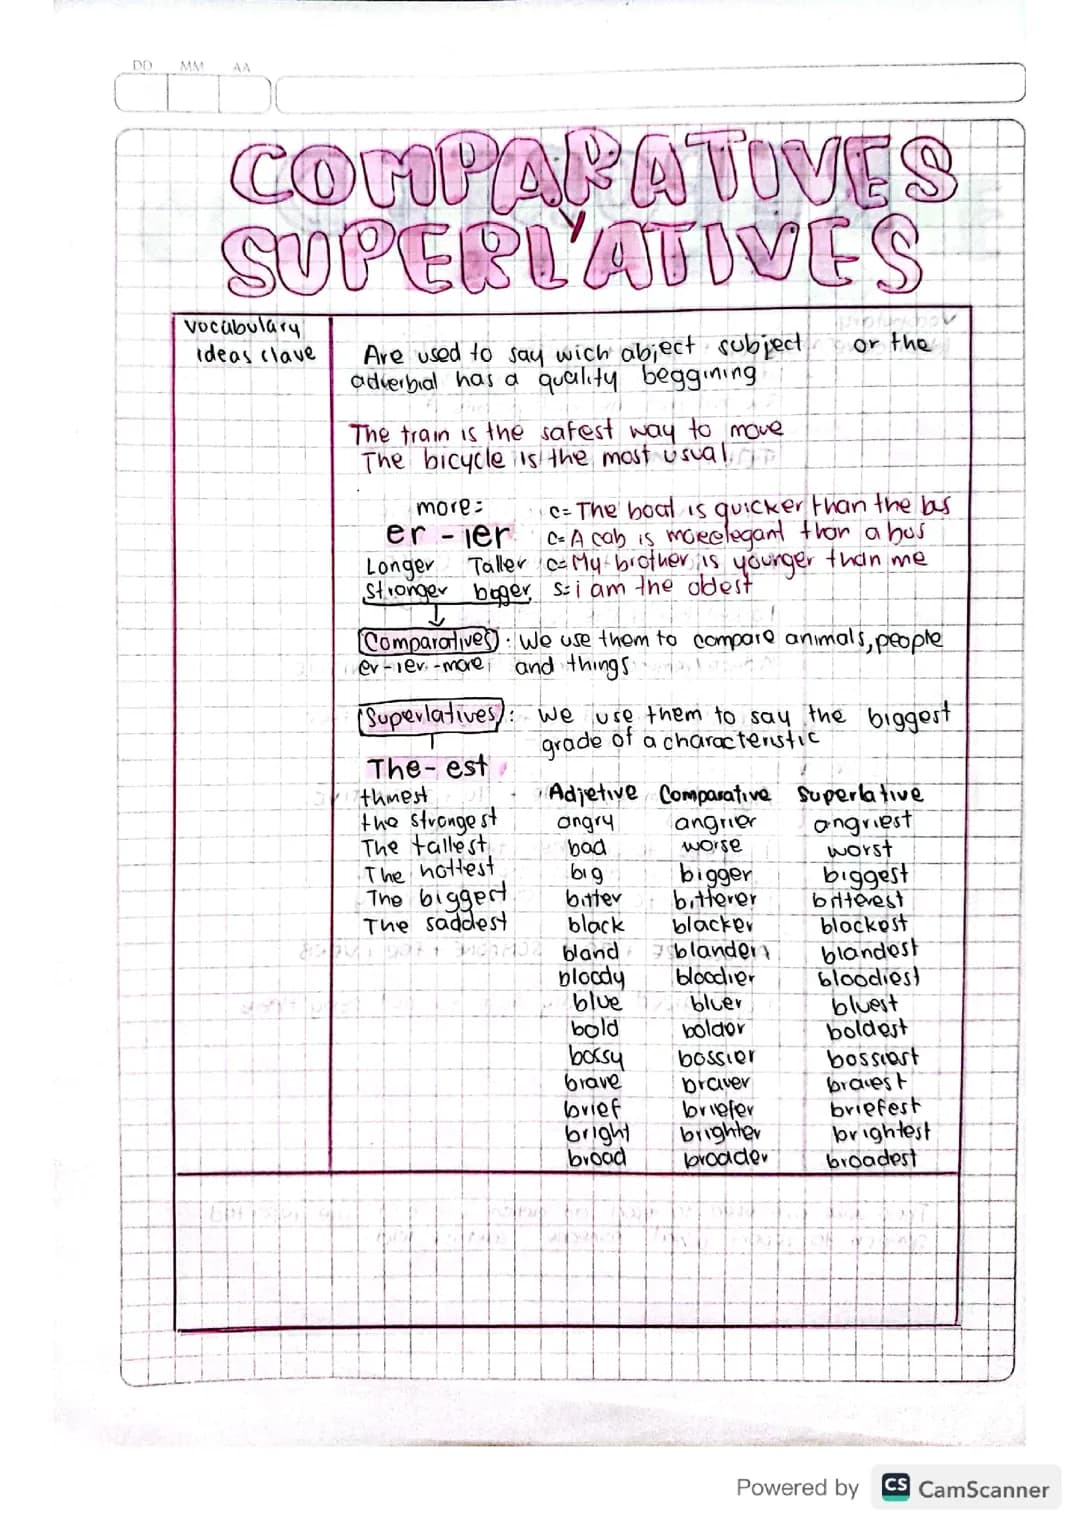 DD MM AA
COMPARATIVES
Y
SUPERLATIVES
vocabulary
ideas clave
Are used to say wich abject subject or the
adverbial has a quality beggining
The train is the safest way to move
The bicycle is the most usual
more: c= The boat is quicker than the bus
er - ier c= A cab is more elegant than a bus
Longer Taller c= My brother is younger than me
Stronger biger s= i am the oldest
Comparatives: We use them to compare animals, people
er-ier-more and things
Superlatives: we use them to say the biggest
grade of a characteristic
The - est
thinest Adjetive Comparative Superlative
the strongest angry angrier angriest
The tallest bad worse worst
The hottest big bigger biggest
The biggest bitter bitterer bitterest
The saddest black blacker blackest
bland blander blandest
bloody bloodier bloodiest
blue bluer bluest
bold bolder boldest
bossy bossier bossiest
brave braver bravest
brief briefer briefest
bright brighter brightest
broad broader broadest
Powered by CS CamScanner